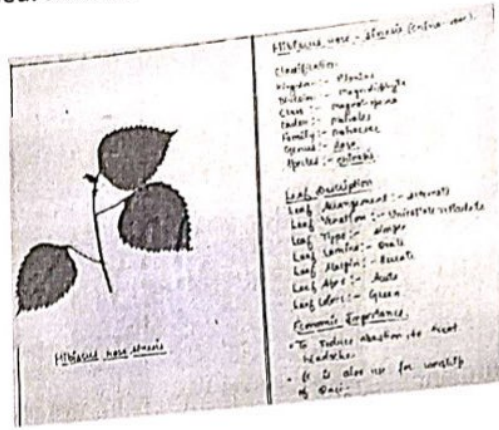 Hibiscus rose-sinensis (China rose).
Classification
Kingdom :- Plantae
Division :- Magnoliophyta
Class :- Magnoliopsida
Order :- Malvales
Family :- Malvaceae
Genus :-
Species :- sinensis
Leaf Description
Leaf Arrangement :- alternate
Leaf Venation :- Unicostate reticulate
Leaf Type :- Simple
Leaf Lamina :- Ovate
Leaf Margin :- Serrate
Leaf Apex :- Acute
Leaf Colors :- Green
Economic Importance
• To induce abortion, to treat
headache.
• It is also use for worship
of
Hibiscus rose sinesis